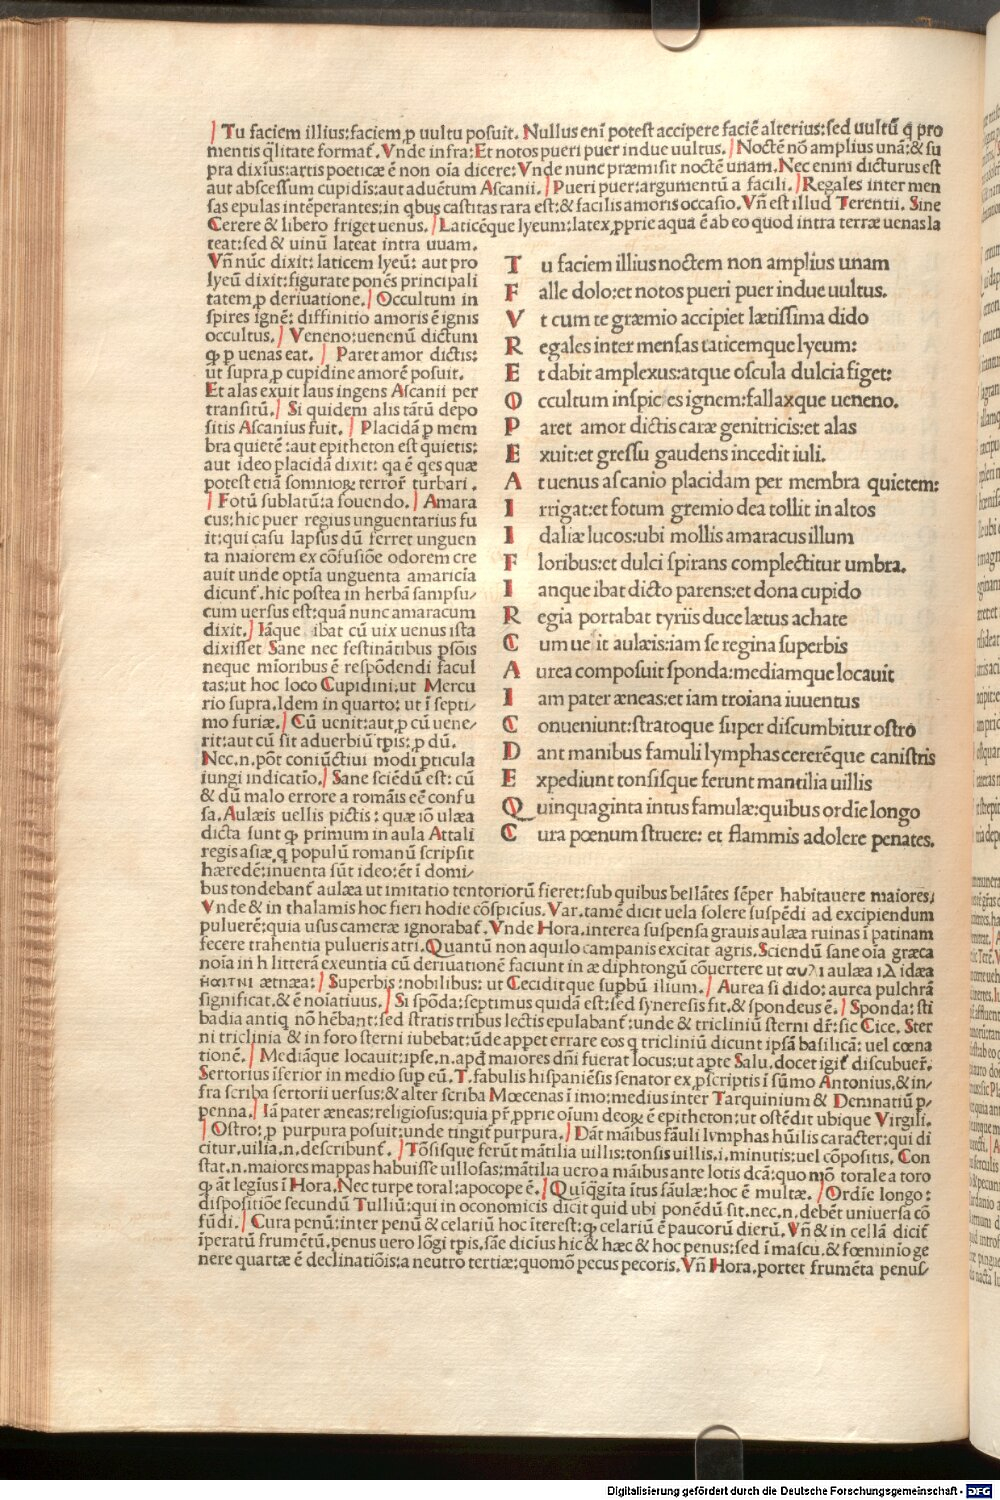 Tu faciem illius:faciem ꝑ uultu posuit. Nullus eni potest accipere faciē alterius:sed uultū q̄ pro
mentis q̄litate format̄. Vnde infra:Et notos pueri puer indue uultus. Noctē nō amplius unā:& su
pra diximus:artis poeticæ ē non oīa dicere:Vnde nunc præmisit noctē unam. Nec enim dicturus est
aut abscessum cupidīs:aut aduētum Ascanii. Pueri puer:argumentū a facili. Regales inter men
sas epulas intēperantes:in qbus castitas rara est:& facilis amoris occasio. Vn̄ est illud Terentii. Sine
Cerere & libero friget uenus. Laticēque lyeum:latex ꝓprie aqua ē ab eo quod intra terræ uenas la
teat:sed & uinū lateat intra uuam.
Vn̄ nūc dixit: laticem lyeū: aut pro
lyeū dixit:figurate ponēs principali
tatem ꝑ deriuatione. Occultum in
spires ignē: diffinitio amoris ē ignis
occultus. Veneno:uenenū dictum
ꝙ ꝑ uenas eat. Paret amor dictis:
ut supra ꝑ cupidine amorē posuit.
Et alas exuit laus ingens Ascanii per
transitū. Si quidem alis tātū depo
sitis Ascanius fuit. Placidā ꝑ mem
bra quietē:aut epitheton est quietis:
aut ideo placidā dixit: qa ē qes quæ
potest etiā somnioꝝ terror̄ turbari.
Fotū sublatū:a fouendo. Amara
cus:hic puer regius unguentarius fu
it:qui casu lapsus dū ferret unguen
ta maiorem ex cōfusiōe odorem cre
auit unde optīa unguenta amaricīa
dicunt̄. hic postea in herbā sampsu/
cum uersus est:quā nunc amaracum
dixit. Iāque ibat cū uix uenus ista
dixisset Sane nec festinātibus psōis
neque mīoribus ē respōdendi facul
tas:ut hoc loco Cupidini:ut Mercu
rio supra. Idem in quarto: ut ī septi/
mo furiæ. Cū uenit:aut ꝑ cū uene/
rit:aut cū sit aduerbiū tꝑis: ꝑ dū.
Nec.n.pōt coniūctiui modi ꝑticula
iungi indicatīo. Sane sciēdū est: cū
& dū malo errore a romāis eē confu
sa. Aulæis uellis pictis: quæ iō ulæa
dicta sunt ꝙ primum in aula Attali
regis asiæ q̄ populū romanū scripsit
hæredē:inuenta sūt ideo:ēt ī domi/
T u faciem illius noctem non amplius unam
F alle dolo:et notos pueri puer indue uultus.
V t cum te græmio accipiet lætissima dido
R egales inter mensas taticemque lyeum:
E t dabit amplexus:atque oscula dulcia figet:
O ccultum inspicies ignem:fallaxque ueneno.
P aret amor dictis caræ genitricis:et alas
E xuit:et gressu gaudens incedit iuli.
A t uenus ascanio placidam per membra quietem:
I rrigat:et fotum gremio dea tollit in altos
I daliæ lucos:ubi mollis amaracus illum
F loribus:et dulci spirans complectitur umbra.
I anque ibat dicto parens:et dona cupido
R egia portabat tyriis duce lætus achate
C um ue it aulæis:iam se regina superbis
A urea composuit sponda:mediamque locauit
I am pater æneas:et iam troiana iuuentus
C onueniunt:stratoque super discumbitur ostro
D ant manibus famuli lymphas cererēque canistris
E xpediunt tonsisque ferunt mantilia uillis
Q uinquaginta intus famulæ:quibus ordīe longo
C ura pœnum struere: et flammis adolere penates.
bus tondebant̄ aulæa ut imitatio tentoriorū fieret:sub quibus bellātes sēper habitauere maiores/
Vnde & in thalamis hoc fieri hodie cōspicīus. Var.tamē dicit uela solere suspēdi ad excipiendum
puluerē:quia usus cameræ ignorabat̄. Vnde Hora.interea suspensa grauis aulæa ruinas ī patinam
fecere trahentia pulueris atri. Quantū non aquilo campanis excitat agris. Sciendū sane oīa græca
noīa in h litterā exeuntia cū deriuationē faciunt in æ diphtongū cōuertere ut αυλι aulæa ιλ idæa
ηαιτνι ætnæa: Superbis:nobilibus: ut Ceciditque supbū ilium. Aurea si dido: aurea pulchrā
significat.& ē noīatiuus. Si spōda:septimus quidā est:sed syneresis fit.& spondeus ē. Sponda: sti
badia antiq nō hēbant:sed stratis tribus lectis epulabant̄:unde & tricliniū sterni dr̄:sic Cice. Ster
ni triclinia & in foro sterni iubebat:ūde appet errare eos q tricliniū dicunt ipsā basilicā: uel cœna
tionē. Mediāque locauit:ipse.n.apđ maiores dn̄i fuerat locus:ut apte Salu.docet igit̄ discubuer̄.
Sertorius īferior in medio sup eū. T. fabulis hispaniēsis senator ex ꝓscriptis ī sūmo Antonius.& in/
fra scriba sertorii uersus:& alter scriba Mœcenas ī imo:medius inter Tarquinium & Demnatiū ꝑ/
penna. Iā pater æneas:religiosus:quia pr̄ ꝓprie oīum deoꝝ ē epitheton:ut ostēdit ubique Virgili.
Ostro: ꝑ purpura posuit:unde tingit̄ purpura. Dāt māibus fāuli lymphas hūilis caracter:qui di
citur.uilia.n.describunt̄. Tōsisque ferūt mātilia uillis:tonsis uillis.i.minutis:uel cōpositis. Con
stat.n.maiores mappas habuisse uillosas:mātilia uero a māibus ante lotis dcā:quo mō torale a toro
ꝙ āt legīus ī Hora.Nec turpe toral:apocope ē. Quīqgīta ītus fāulæ:hoc ē multæ. Ordīe longo:
dispositiōe secundū Tulliū:qui in oconomicis dicit quid ubi ponēdū sit.nec.n.debēt uniuersa cō
fūdi. Cura penū:inter penū & celariū hoc īterest:ꝙ celariū ē paucorū dierū. Vn̄ & in cellā dicit̄
īperatū frumētū.penus uero lōgi tꝑis.sāe dicīus hic & hæc & hoc penus:sed ī mascu.& fœminīo ge
nere quartæ ē declinatiōis:a neutro tertiæ:quomō pecus pecoris. Vn̄ Hora.portet frumēta penus/
Digitalisierung gefördert durch die Deutsche Forschungsgemeinschaft - DFG